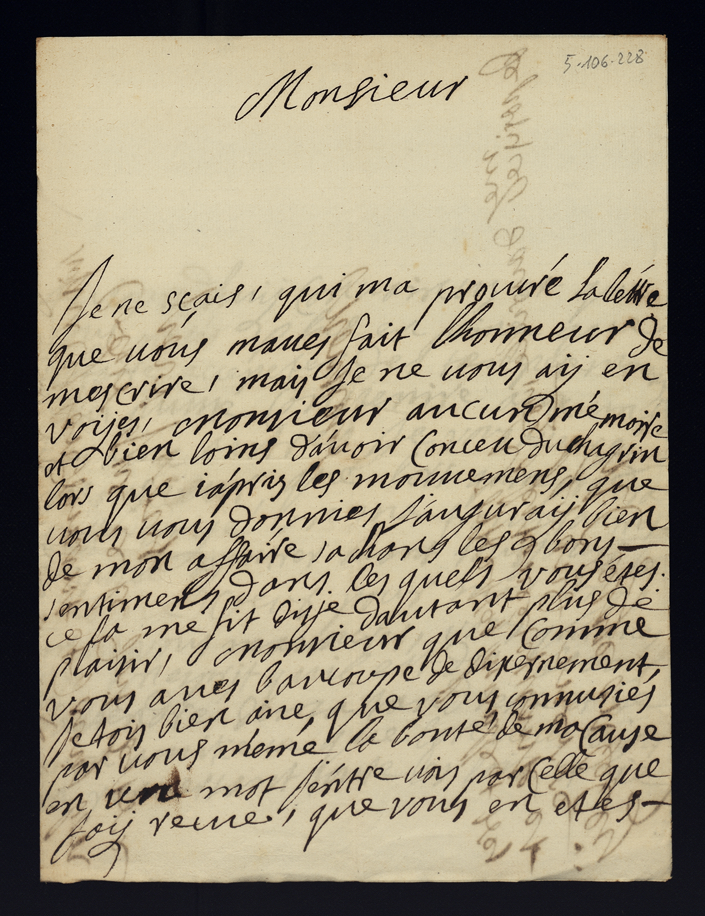 5-106-228
Monsieur
Je ne sçais, qui ma procuré la lettre
que vous maues fait lhonneur de
mescrire, mais Je ne vous aij en
voijes, monsieur aucuns mémoire
et bien loins dávoir Conceu du chagrin
lors que iápris les mouuemens, que
vous vous donnies Jauguraij bien
de mon affaire sachans les bons
sentimens dans les quels vous étes.
ce la me fit disje dautant plus de
plaisir, monsieur que Comme
vous aues baucoupe de disernement,
Jetois bien aise, que vous connusiés
par vous méme la bonté de ma Cause
en un mot Jéntre vois par Celle que
Jaij receue, que vous en etes